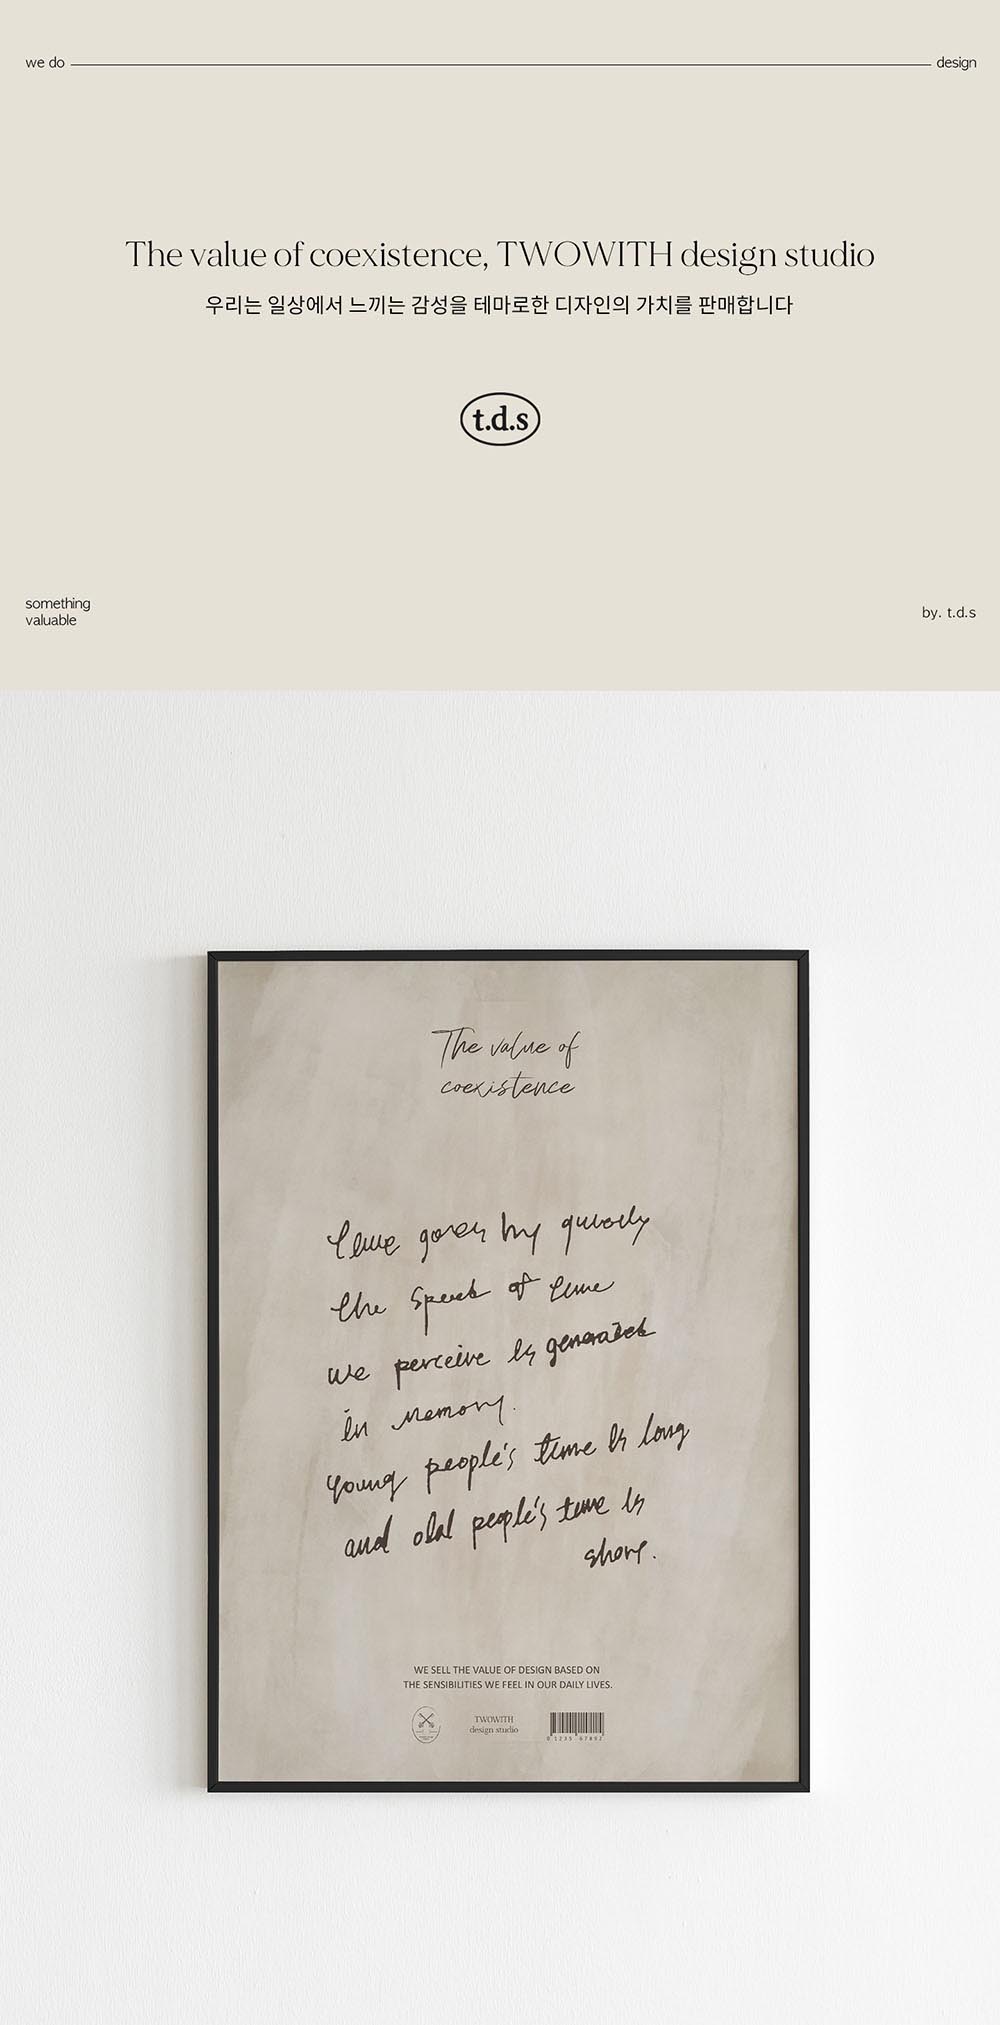 we do design
The value of coexistence, TWOWITH design studio
우리는 일상에서 느끼는 감성을 테마로한 디자인의 가치를 판매합니다
t.d.s
something
valuable
by. t.d.s
The value of
coexistence
time goes by
the speed of time
we perceive is generated
in memory.
Young people's time is long
and old people's time is
short.
WE SELL THE VALUE OF DESIGN BASED ON
THE SENSIBILITIES WE FEEL IN OUR DAILY LIVES.
TWOWITH
design studio